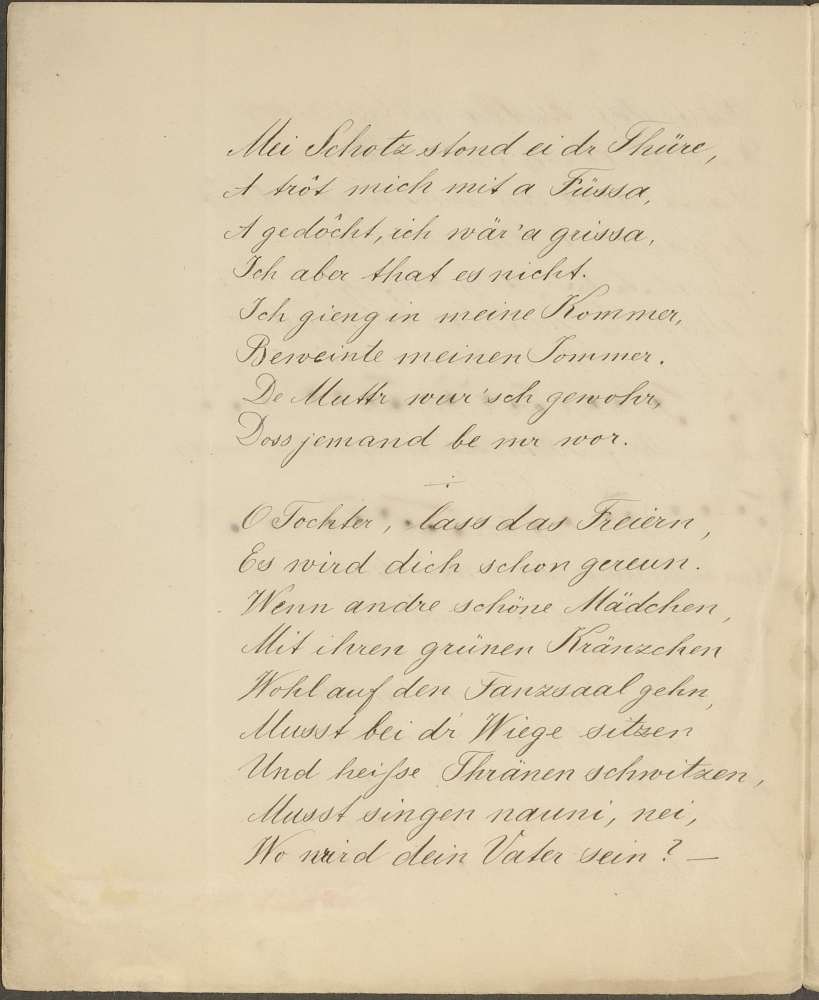 Mei Schotz stond ei dr Thüre,
A trôt mich mit a Füssa,
A gedôcht, ich wär' a grissa,
Ich aber that es nicht.
Ich gieng in meine Kommer,
Beweinte meinen Jommer.
De Muttr wur'sch gewohr,
Doss jemand be mr wor.
÷
O Tochter, lass das Freiern,
Es wird dich schon gereun.
Wenn andre schöne Mädchen,
Mit ihren grünen Kränzchen
Wohl auf den Tanzsaal gehn,
Musst bei dr' Wiege sitzen
Und heiſse Thränen schwitzen,
Musst singen nauni, nei,
Wo wird dein Vater sein? —